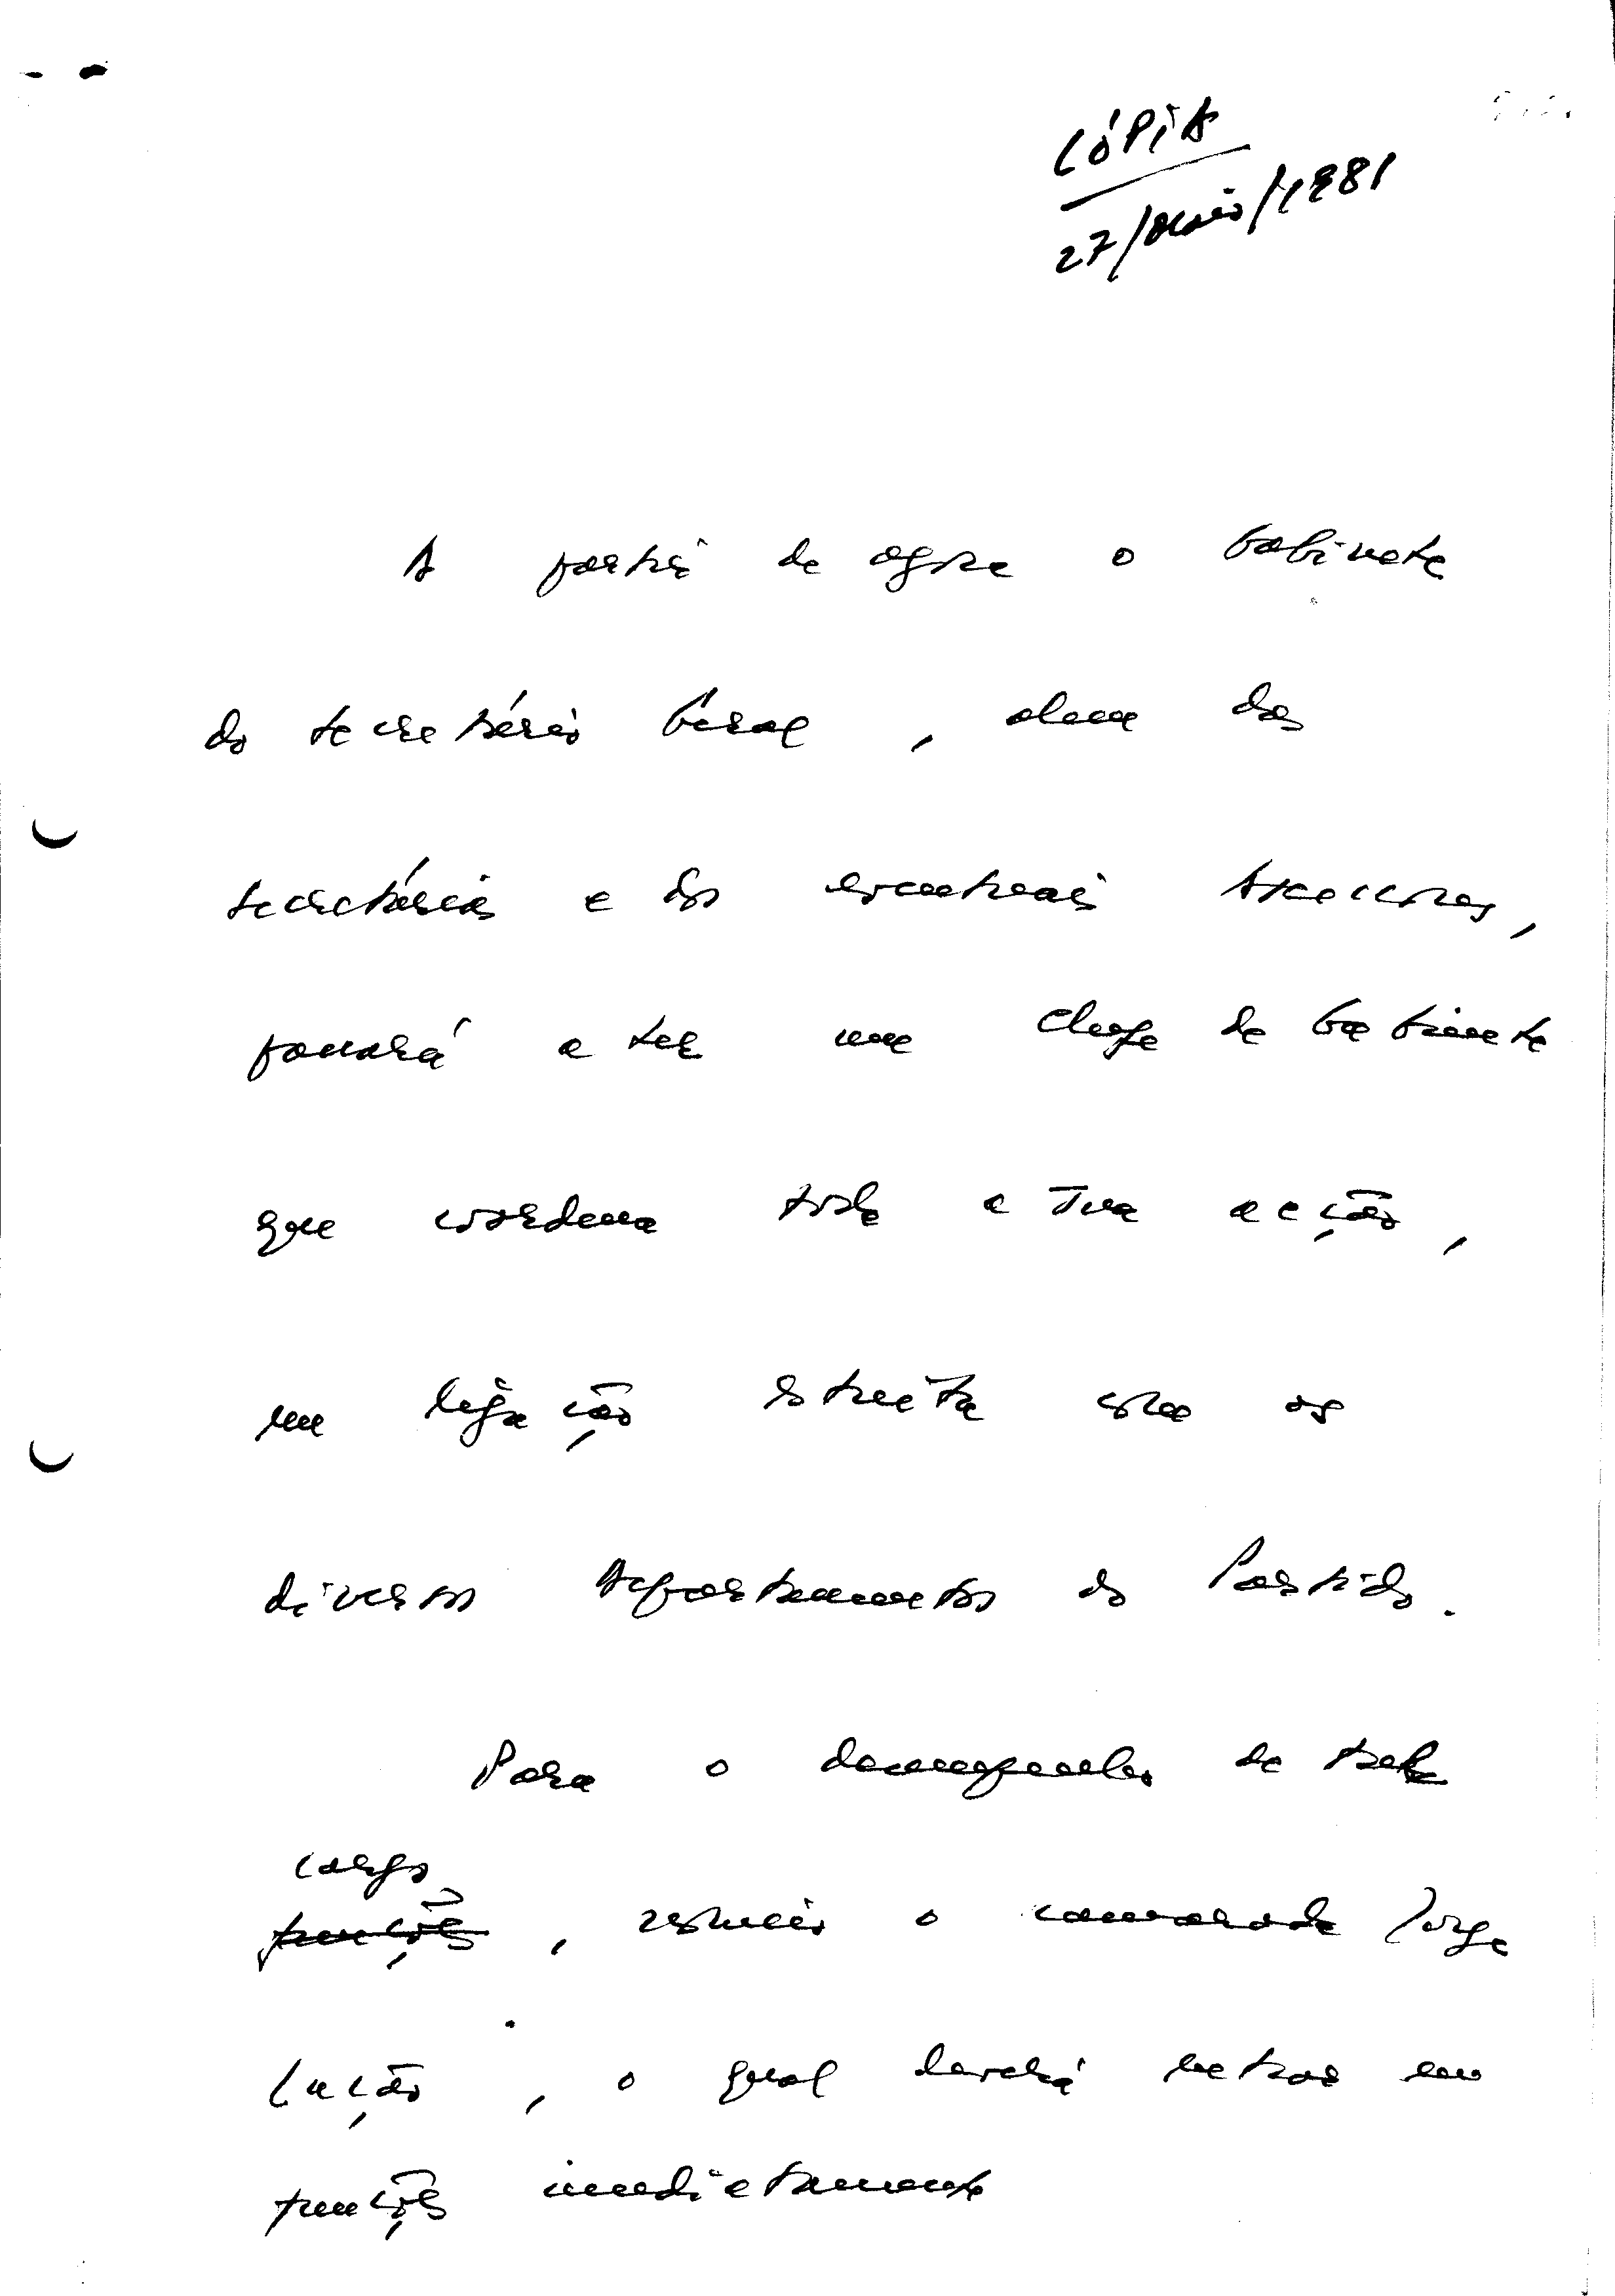 CÓPIA
27/Maio/1981
A partir de agora o Gabinete
do Secretário Geral, alem das
secretárias e dos eventuais Assessores,
passará a ter um Chefe de Gabinete
que coordena toda a sua acção,
em ligação estreita com os
diversos Departamentos do Partido.
Para o desempenho de tal
cargo
funções, nomeio o camarada Jorge
, o qual deverá entrar em
funções imediatamente